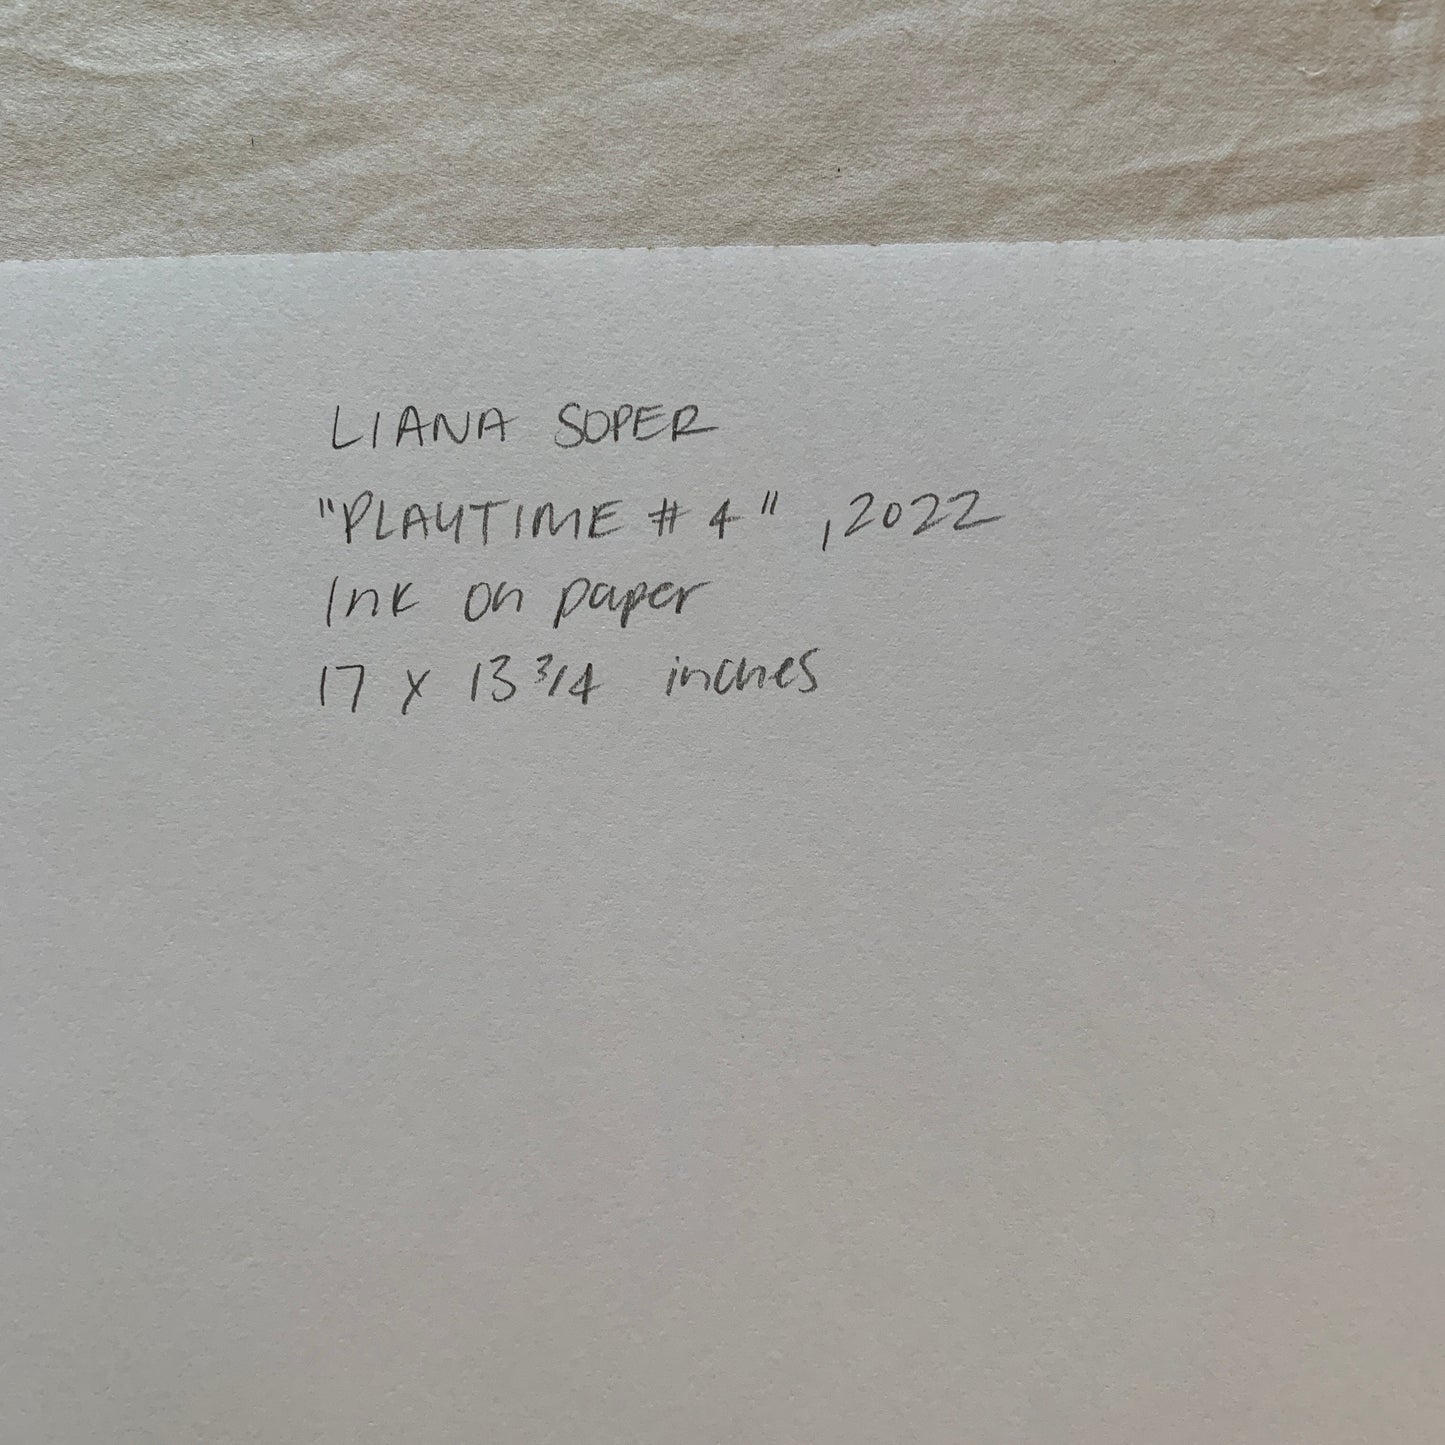 LIANA SOPER
"PLAYTIME # 4" , 2022
Ink on paper
17 x 13 3/4 inches